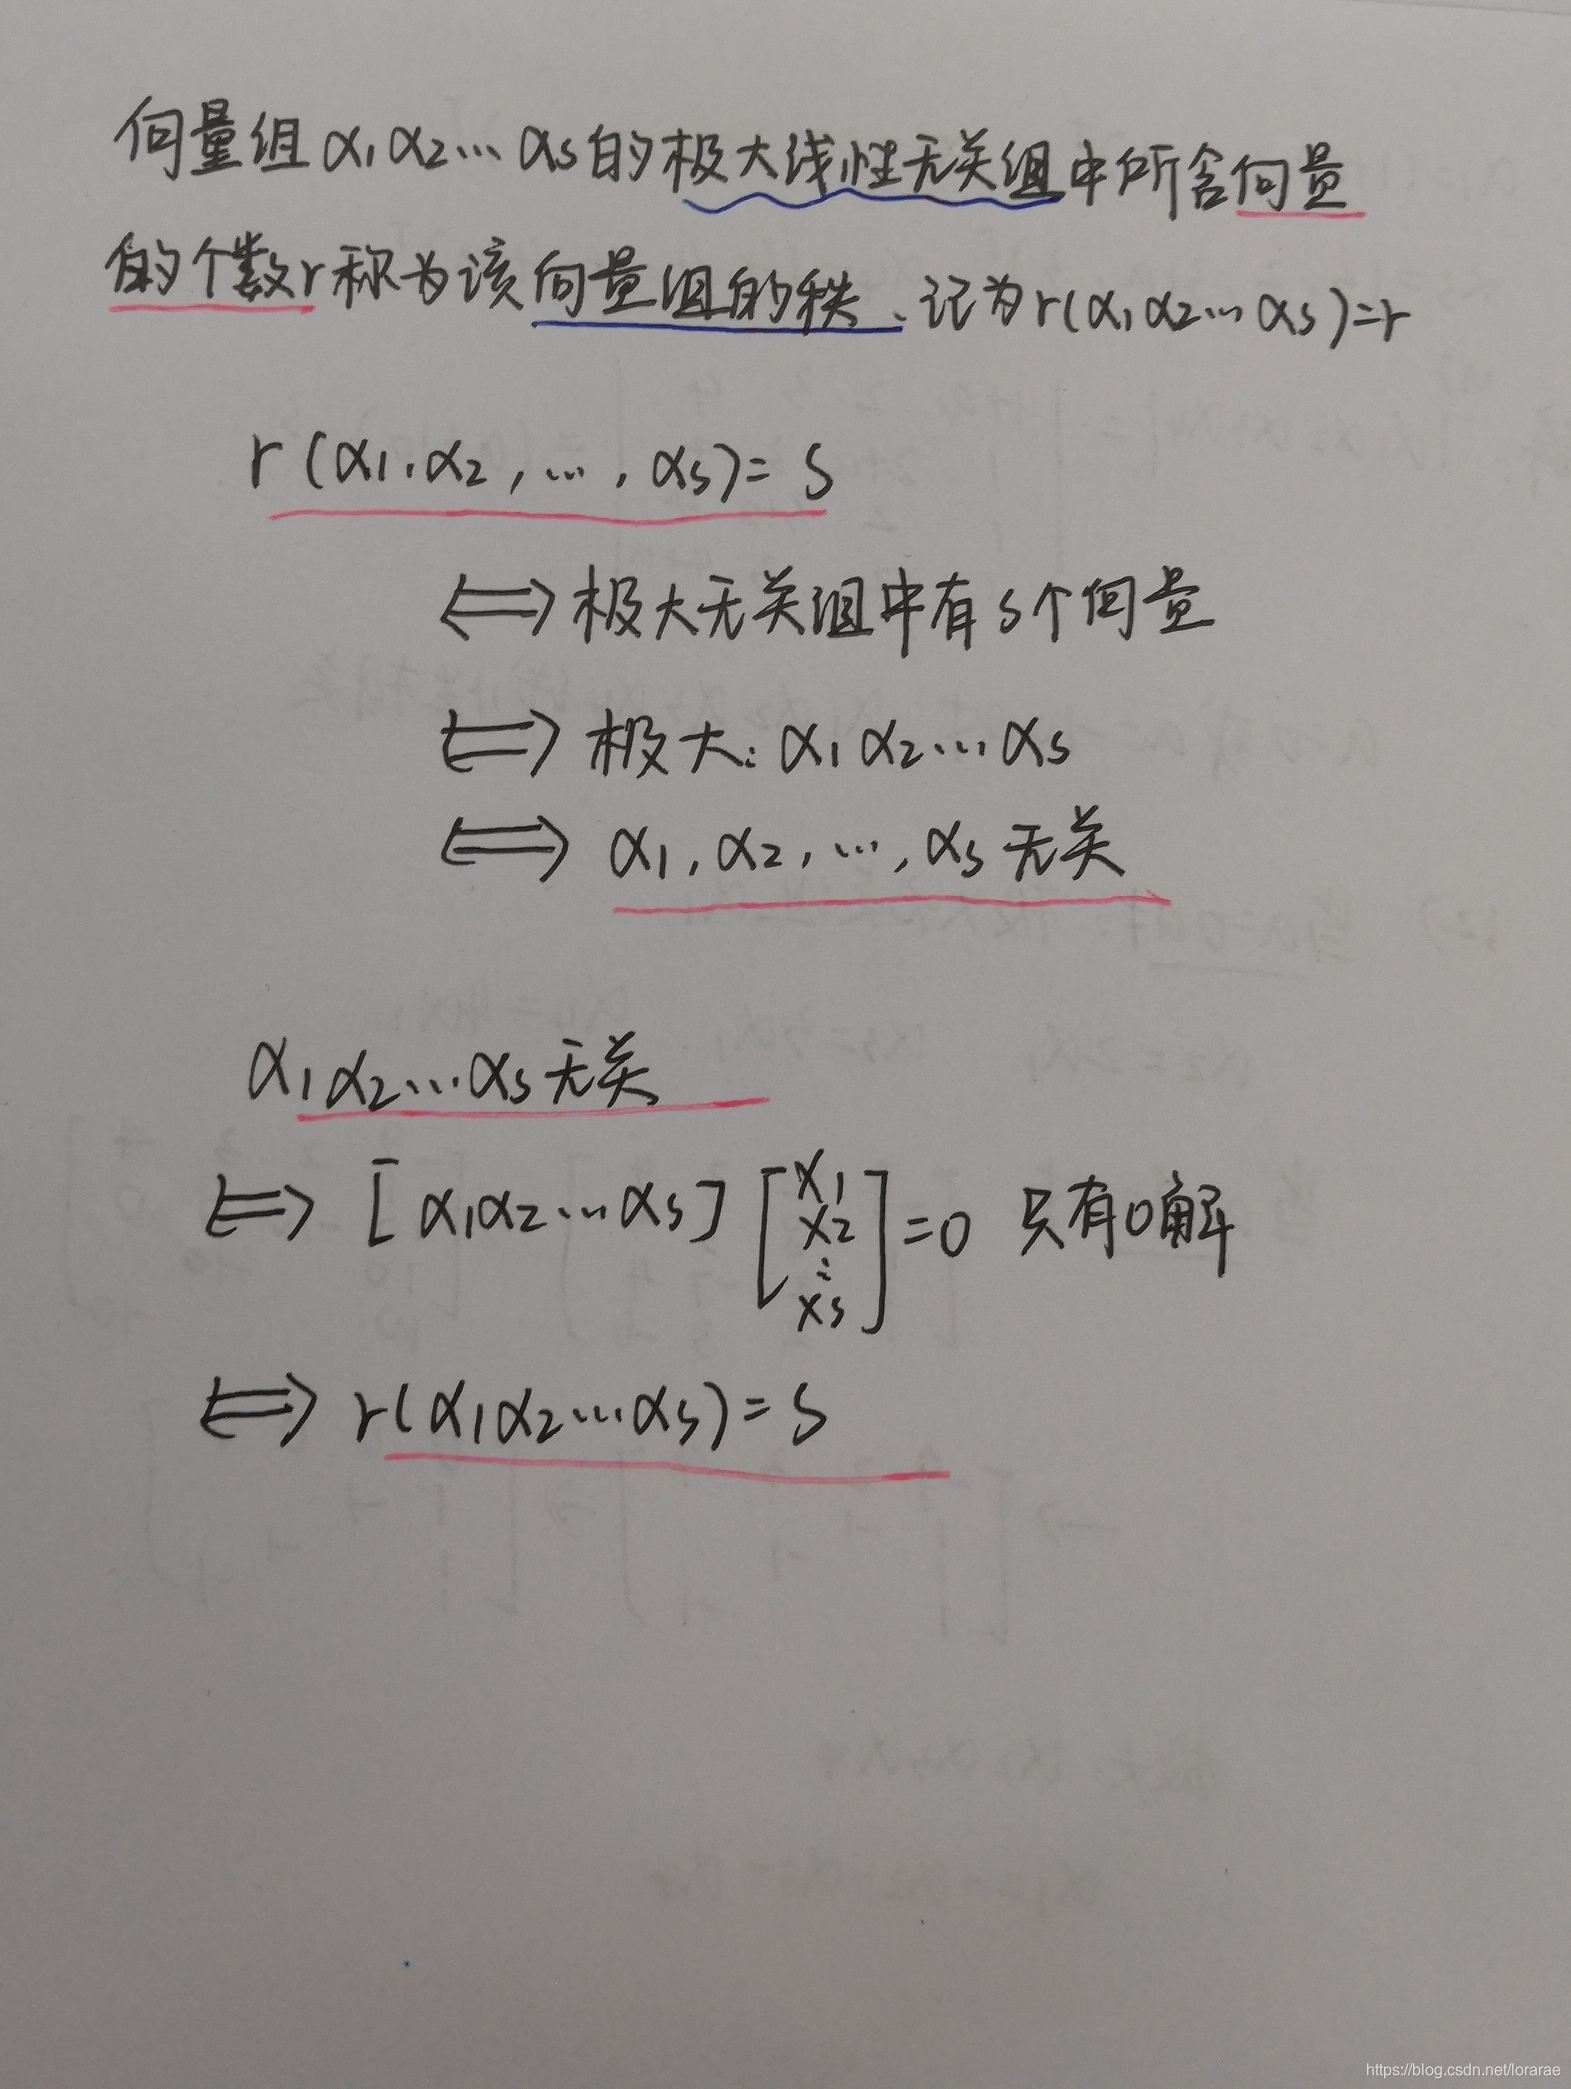 向量组α₁α₂…αs的极大线性无关组中所含向量
的个数r称为该向量组的秩、记为r(α₁α₂…αs)=r
r(α₁,α₂,…,αs)=s
⟺极大无关组中有s个向量
⟺极大:α₁α₂…αs
⟺α₁,α₂,…,αs无关
α₁α₂…αs无关
⟺[α₁α₂…αs][x₁ x₂ ⋮ xs]=0 只有0解
⟺r(α₁α₂…αs)=s
https://blog.csdn.net/lorarae